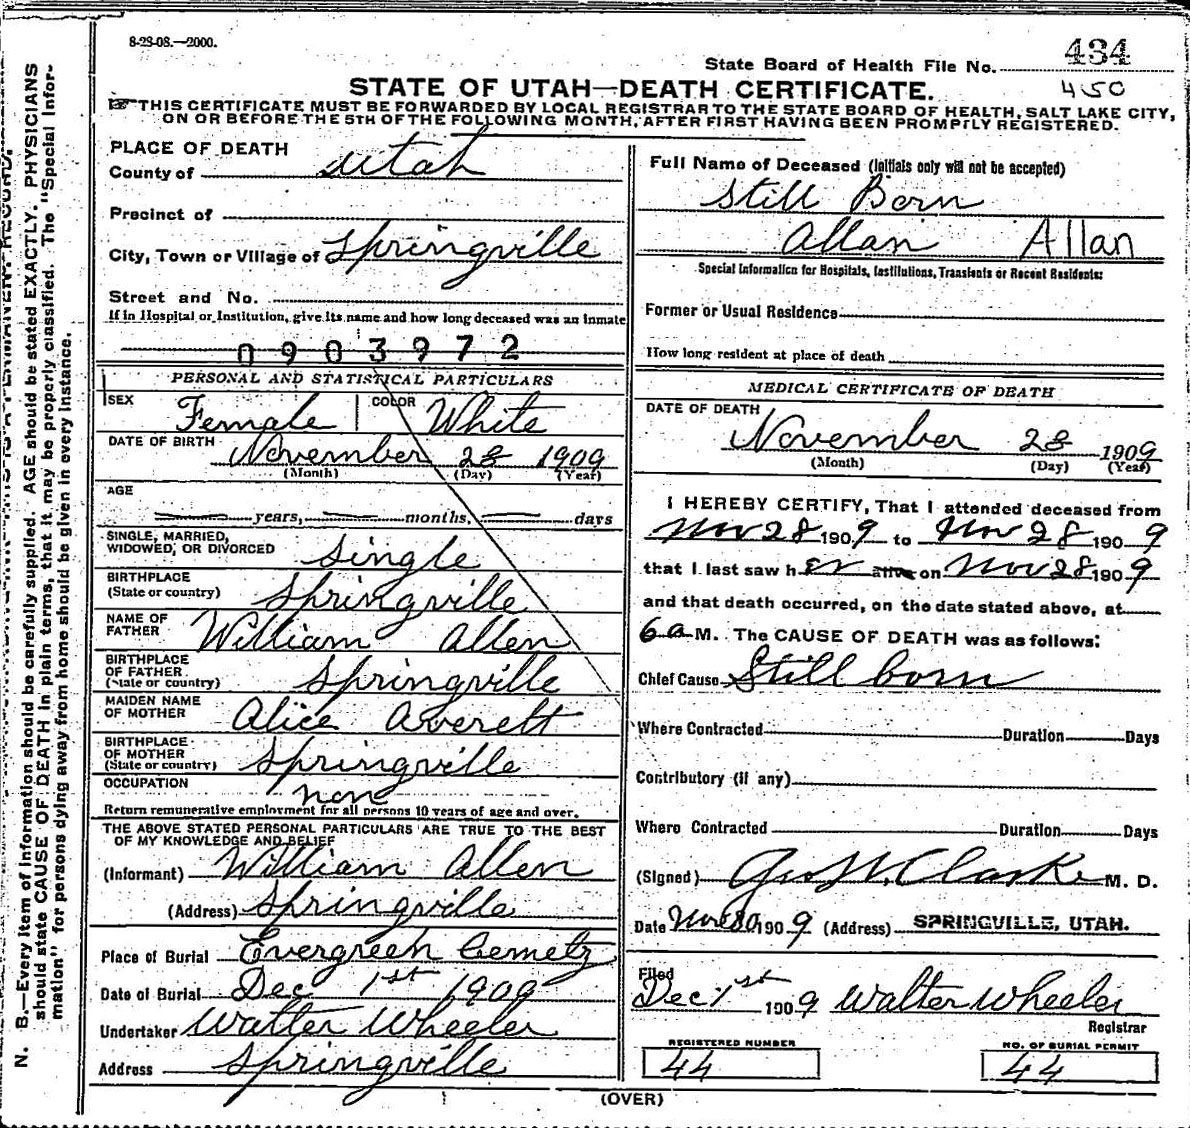 8-28-08.—2000.
State Board of Health File No. 434
450
STATE OF UTAH—DEATH CERTIFICATE.
THIS CERTIFICATE MUST BE FORWARDED BY LOCAL REGISTRAR TO THE STATE BOARD OF HEALTH, SALT LAKE CITY,
ON OR BEFORE THE 5TH OF THE FOLLOWING MONTH, AFTER FIRST HAVING BEEN PROMPTLY REGISTERED.
PLACE OF DEATH
County of Utah
Precinct of
City, Town or Village of Springville
Street and No.
If in Hospital or Institution, give its name and how long deceased was an inmate
0903972
PERSONAL AND STATISTICAL PARTICULARS
SEX Female COLOR White
DATE OF BIRTH November 28 1909
(Month) (Day) (Year)
AGE
years, months, days
SINGLE, MARRIED,
WIDOWED, OR DIVORCED Single
BIRTHPLACE
(State or country) Springville
NAME OF
FATHER William Allen
BIRTHPLACE
OF FATHER
(State or country) Springville
MAIDEN NAME
OF MOTHER Alice Averett
BIRTHPLACE
OF MOTHER
(State or country) Springville
OCCUPATION non
Return remunerative employment for all persons 10 years of age and over.
THE ABOVE STATED PERSONAL PARTICULARS ARE TRUE TO THE BEST
OF MY KNOWLEDGE AND BELIEF
(Informant) William Allen
(Address) Springville
Place of Burial Evergreen Cemetz
Date of Burial Dec 1st 1909
Undertaker Walter Wheeler
Address Springville
Full Name of Deceased (Initials only will not be accepted)
Still Born
Allan Allan
Special Information for Hospitals, Institutions, Transients or Recent Residents:
Former or Usual Residence
How long resident at place of death
MEDICAL CERTIFICATE OF DEATH
DATE OF DEATH
November 28 1909
(Month) (Day) (Year)
I HEREBY CERTIFY, That I attended deceased from
Nov 28 1909 to Nov 28 1909
that I last saw her alive on Nov 28 1909
and that death occurred, on the date stated above, at
6 a M. The CAUSE OF DEATH was as follows:
Chief Cause Still born
Where Contracted Duration Days
Contributory (if any)
Where Contracted Duration Days
(Signed) Geo W. Clarke M. D.
Date Nov 30 1909 (Address) SPRINGVILLE, UTAH.
Filed
Dec 1st 1909 Walter Wheeler
Registrar
REGISTERED NUMBER
44
NO. OF BURIAL PERMIT
44
(OVER)
N. B.—Every item of information should be carefully supplied. AGE should be stated EXACTLY. PHYSICIANS
should state CAUSE OF DEATH in plain terms, that it may be properly classified. The "Special Infor-
mation" for persons dying away from home should be given in every instance.